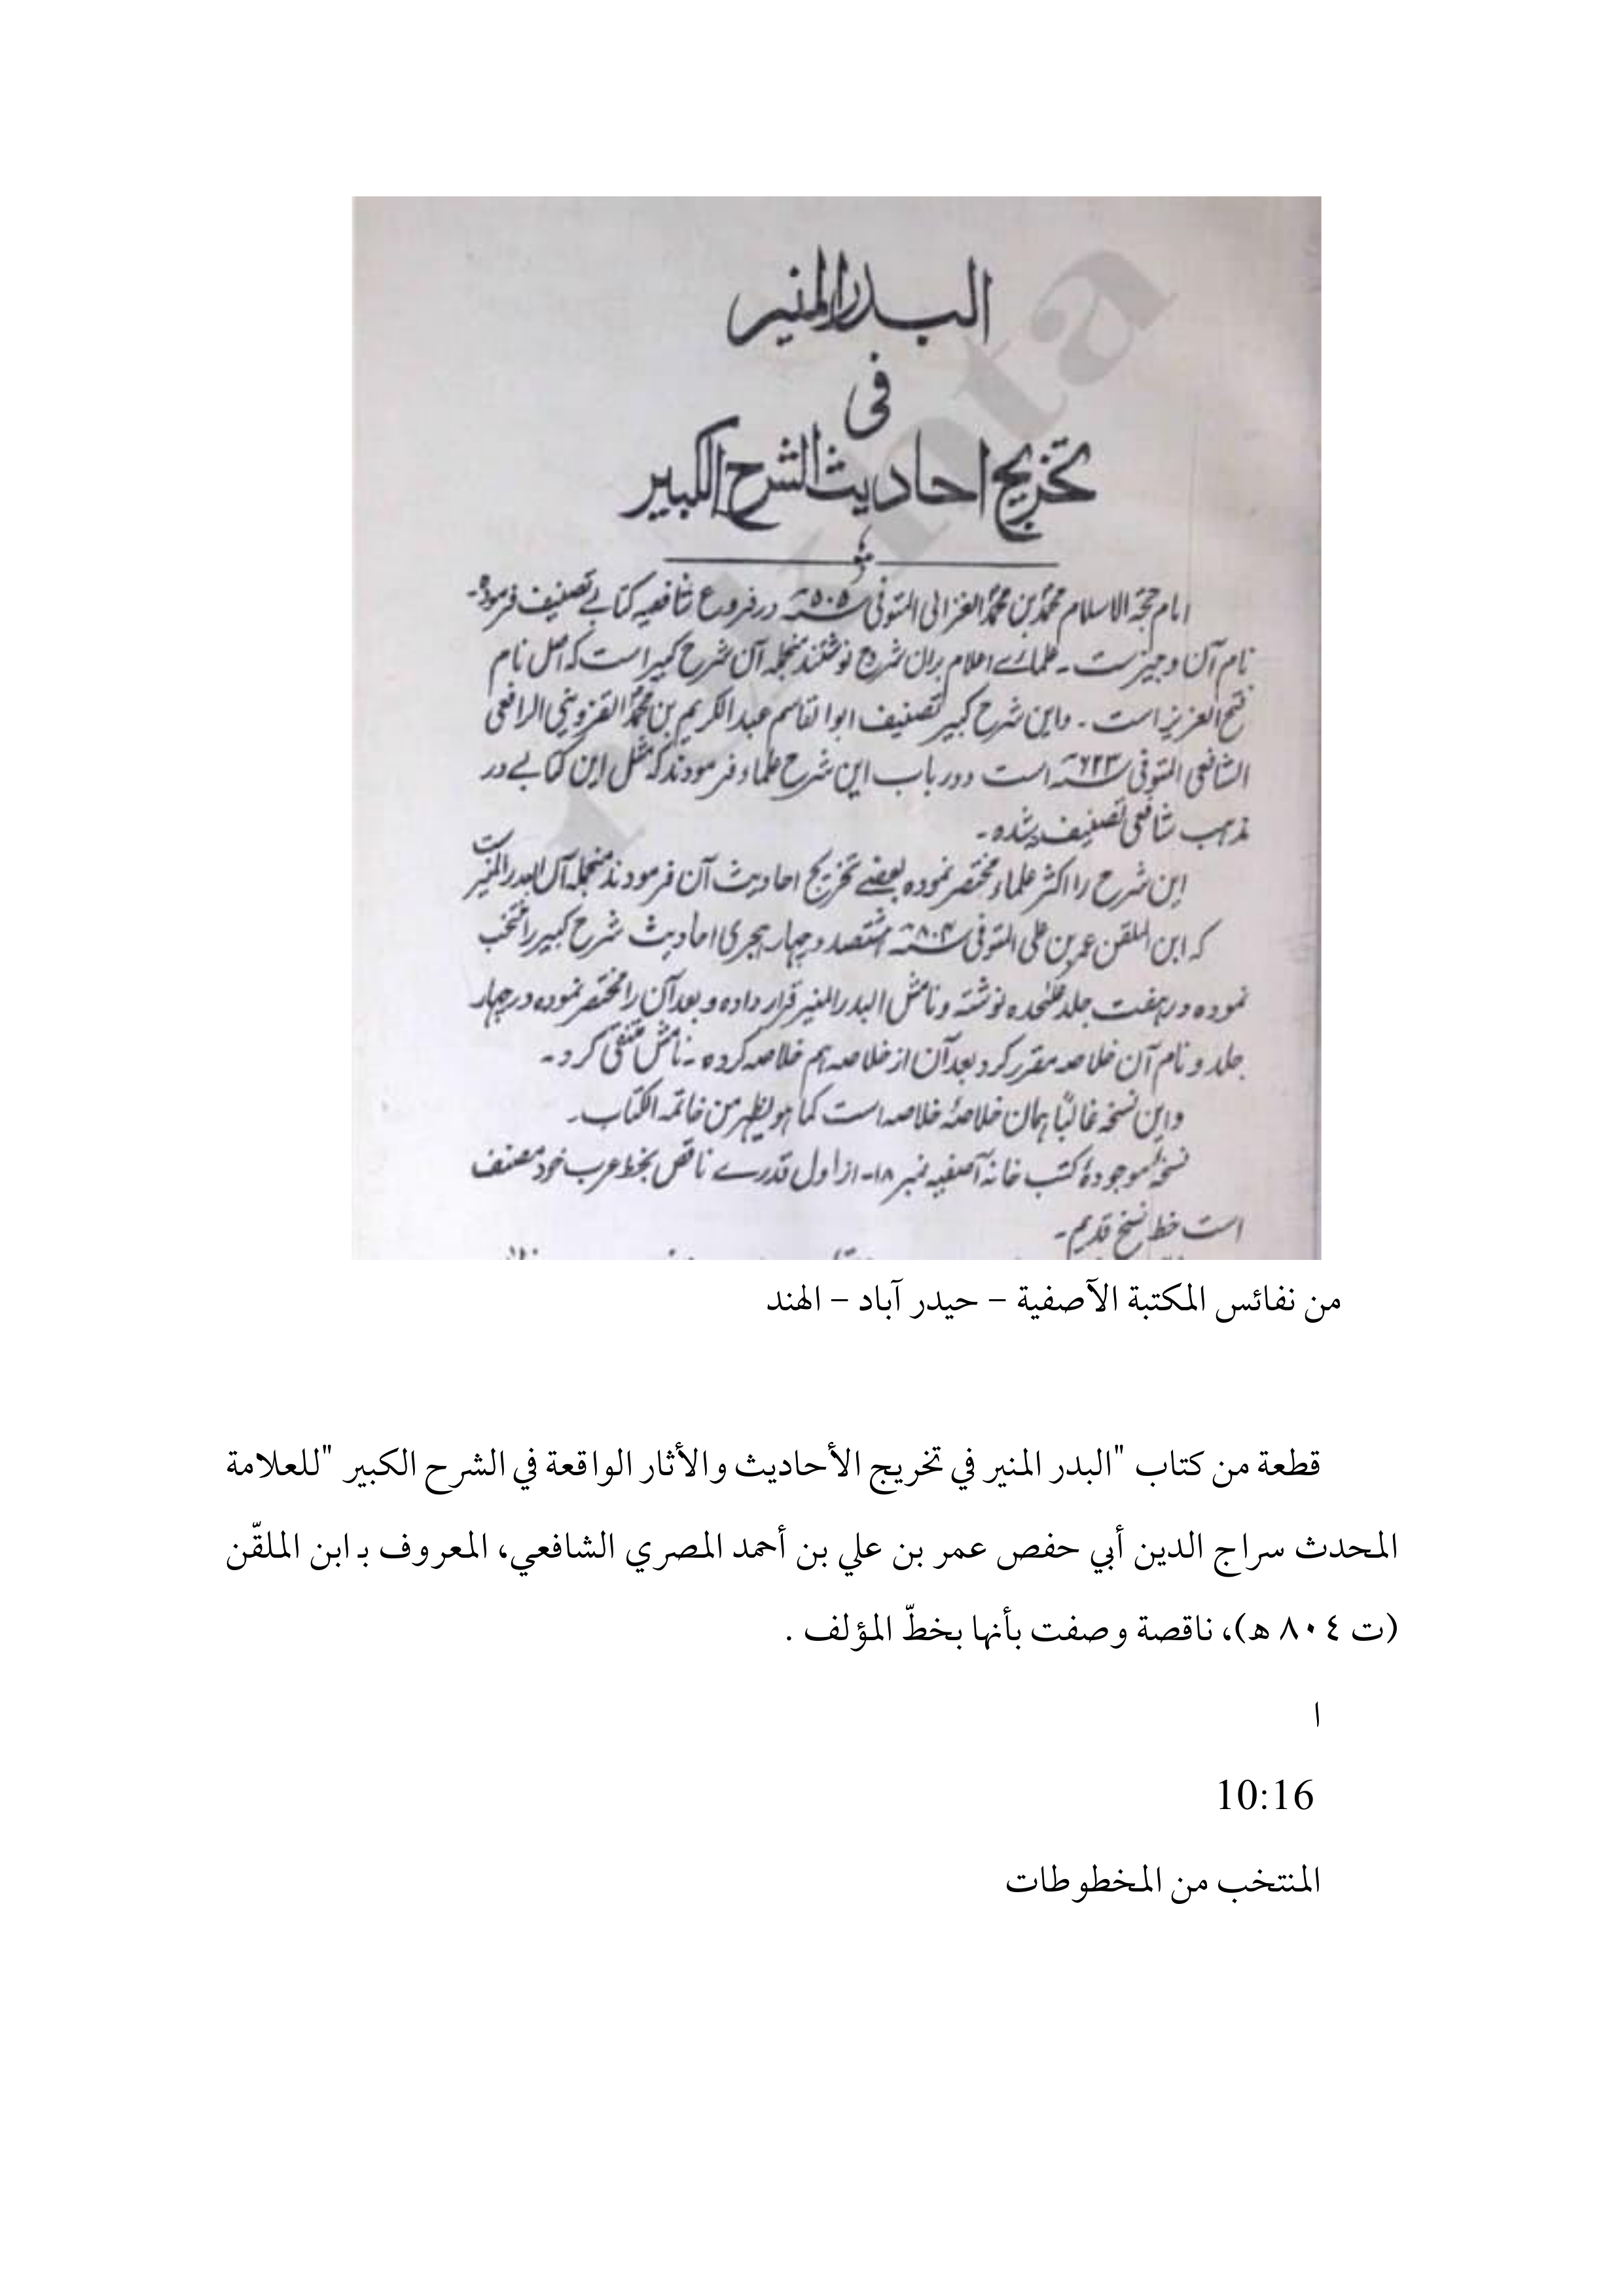 البدر المنیر
فی
تخریج احادیث الشرح الکبیر
امام حجۃ الاسلام محمد بن محمد الغزالی المتوفی ۵۰۵ھ در فروع شافعیہ کتابے تصنیف فرمودہ۔
نام آن وجیزست۔ علمائے اعلام بران شروح نوشتند منجملہ آن شرح کبیر است کہ اصل نام
فتح العزیز است۔ واین شرح کبیر تصنیف ابوالقاسم عبدالکریم بن محمد القزوینی الرافعی
الشافعی المتوفی ۶۲۳ھ است ودر باب این شرح علماء فرمودند کہ مثل این کتابے در
مذہب شافعی تصنیف نشدہ۔
این شرح را اکثر علماء مختصر نمودہ بعضے تخریج احادیث آن فرمودند منجملہ آن البدر المنیر ست
کہ ابن الملقن عمر بن علی المتوفی ۸۰۴ھ ہشتصد و چہار ہجری احادیث شرح کبیر را منتخب
نمودہ در ہفت جلد علٰحدہ نوشتہ و نامش البدر المنیر قرار دادہ و بعد آن را مختصر نمودہ در چہار
جلد و نام آن خلاصہ مقرر کرد بعد آن از خلاصہ ہم خلاصہ کردہ ۔ نامش منتقی کرد ۔
واین نسخہ غالبًا ہمان خلاصۂ خلاصہ است کما ہو یظہر من خاتمہ الکتاب۔
نسخۂ موجودۂ کتب خانہ آصفیہ نمبر ۱۸۔ از اول قدرے ناقص بخط عرب خود مصنف
است خط نسخ قدیم ۔
rekhta
من نفائس المكتبة الآصفية – حيدر آباد – الهند
قطعة من كتاب "البدر المنير في تخريج الأحاديث والأثار الواقعة في الشرح الكبير "للعلامة
المحدث سراج الدين أبي حفص عمر بن علي بن أحمد المصري الشافعي، المعروف بـ ابن الملقّن
(ت ٨٠٤ هـ)، ناقصة وصفت بأنها بخطّ المؤلف .
ا
10:16
المنتخب من المخطوطات